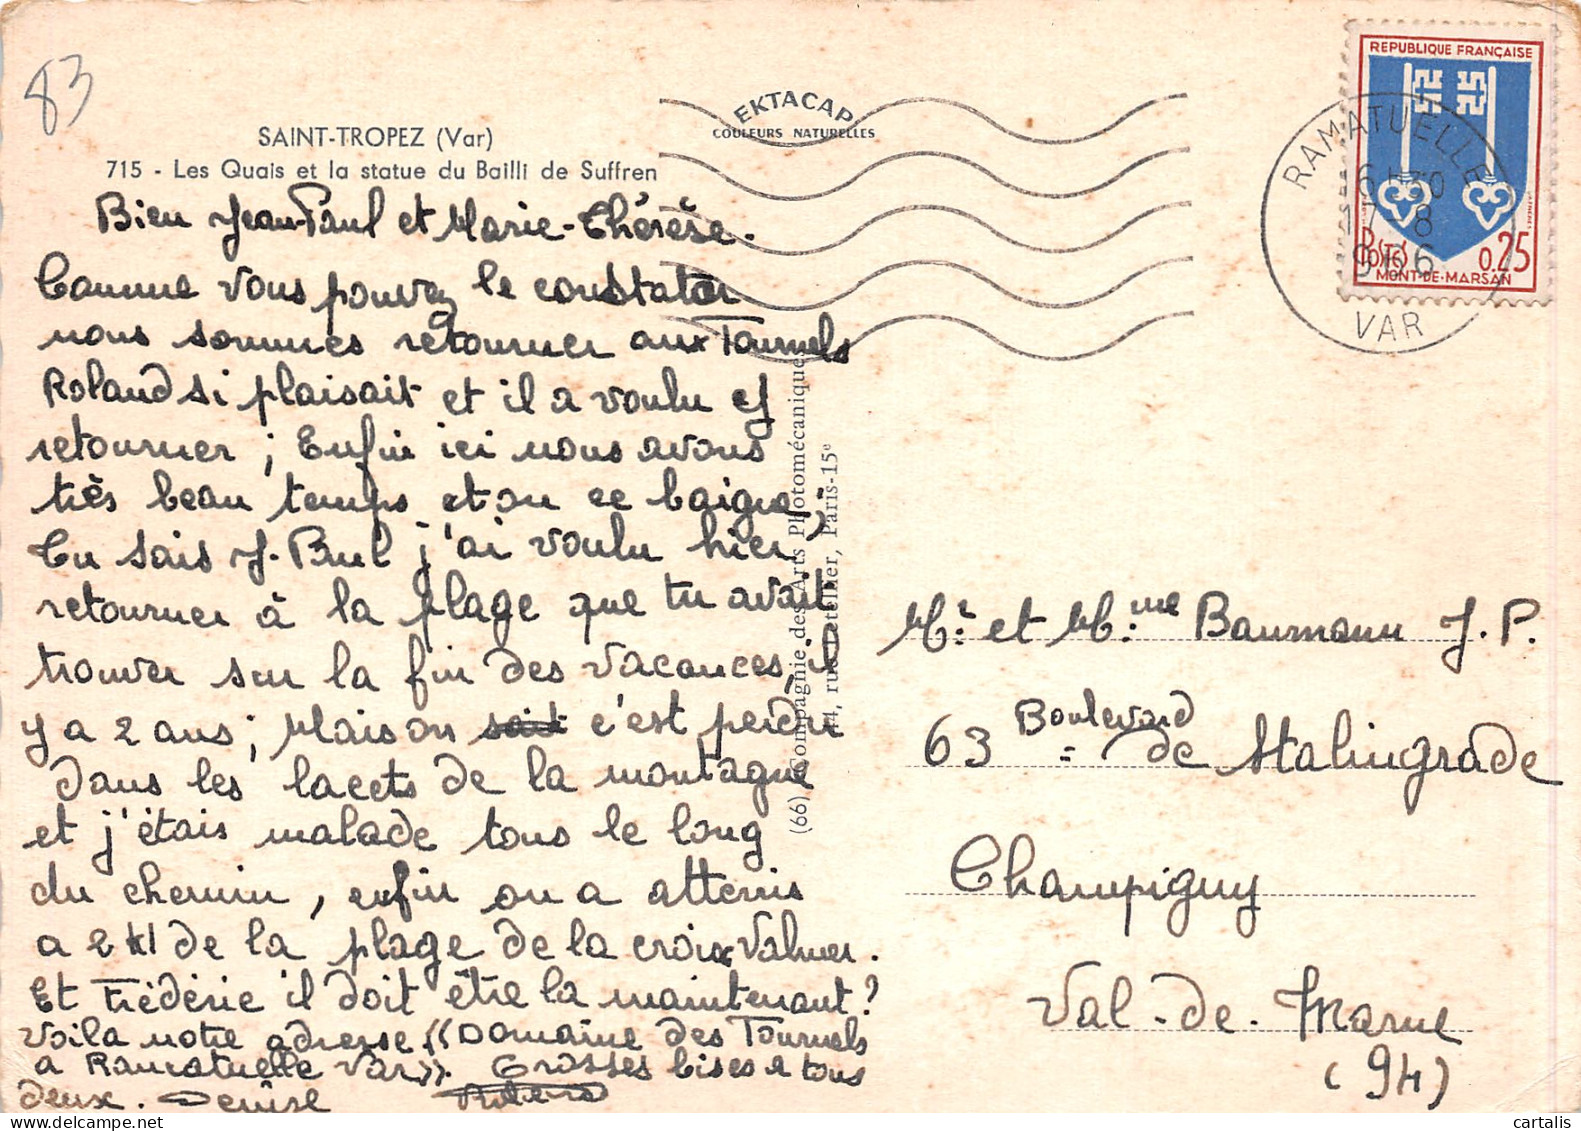 83
SAINT-TROPEZ (Var)
715 - Les Quais et la statue du Bailli de Suffren
EKTACAP
COULEURS NATURELLES
REPUBLIQUE FRANÇAISE
POSTES 0,25
MONT-DE-MARSAN
RAMATUELLE
6 H30
17 - 8
VAR
Bien Jean-Paul et Marie-Thérèse.
Comme vous pouvez le constater
nous sommes retourner aux Tournels
Roland si plaisait et il a voulu y
retourner ; Enfin ici nous avons
très beau temps et on ce baigne,
Tu sais J. Paul j'ai voulu hier
retourner à la plage que tu avait
trouver sur la fin des vacances, il
y a 2 ans ; Maison sait c'est perdu
dans les lacets de la montagne
et j'étais malade tous le long
du chemin, enfin on a atteris
a 2 kl de la plage de la croix Valmer.
Et Frédéric il doit être la maintenant?
Voila notre adresse "Domaine des Tournels
a Ramatuelle Var". Grosses bises a tous
deux. Denise
(66) Compagnie des Arts Photomécaniques
44, rue Letellier, Paris-15e
Mr. et Mme Baumann J.P.
63 Boulevard de Stalingrade
Champigny
Val-de-Marne
(94)
cartalis